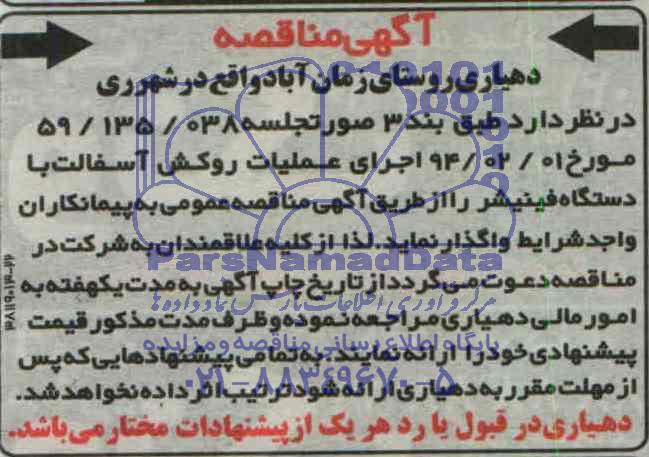 آگهی مناقصه
دهیاری روستای زمان آباد واقع در شهر ری
در نظر دارد طبق بند ۳ صورتجلسه ۰۳۸ / ۱۳۵ / ۵۹
مورخ ۰۱ / ۰۲ / ۹۴ اجرای عملیات روکش آسفالت با
دستگاه فینیشر را از طریق آگهی مناقصه عمومی به پیمانکاران
واجد شرایط واگذار نماید. لذا از کلیه علاقمندان به شرکت در
مناقصه دعوت می گردد از تاریخ چاپ آگهی به مدت یکهفته به
امور مالی دهیاری مراجعه نموده و ظرف مدت مذکور قیمت
پیشنهادی خود را ارائه نمایند. به تمامی پیشنهادهایی که پس
از مهلت مقرر به دهیاری ارائه شود ترتیب اثر داده نخواهد شد.
دهیاری در قبول یا رد هر یک از پیشنهادات مختار می باشد.
ParsNamadData
مرکز فرآوری اطلاعات پارس نماد داده ها
پایگاه اطلاع رسانی مناقصه و مزایده
۰۲۱-۸۸۳۴۹۶۷۰-۵